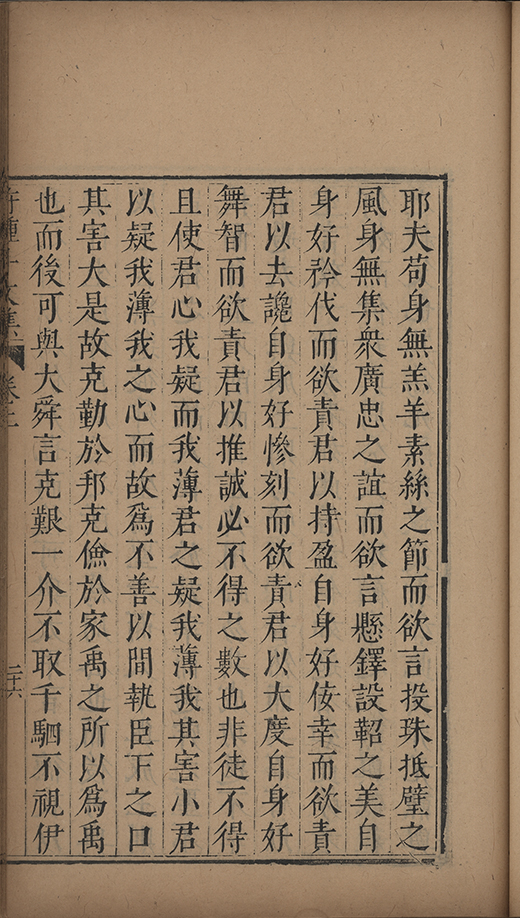 耶夫苟身無羔羊素絲之節而欲言投珠抵璧之
風身無集衆廣忠之誼而欲言懸鐸設鞀之美自
身好矜伐而欲責君以持盈自身好佞幸而欲責
君以去讒自身好慘刻而欲責君以大度自身好
舞智而欲責君以推誠必不得之數也非徒不得
且使君心我疑而我薄君之疑我薄我其害小君
以疑我薄我之心而故爲不善以間執臣下之口
其害大是故克勤於邦克儉於家禹之所以爲禹
也而後可與大舜言克艱一介不取千駟不視伊
文集
卷三
二十六